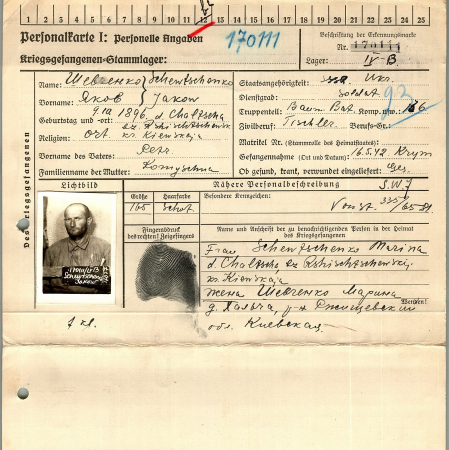 1 2 3 4 5 6 7 8 9 10 11 12 13 14 15 16 17 18 19 20 21 22 23 24 25
Personalkarte I: Personelle Angaben
Kriegsgefangenen-Stammlager:
170111
Beschriftung der Erkennungsmarke
Nr. 170111
Lager: IV B
Des Kriegsgefangenen
Name: Шевченко Schewtschenko
Vorname: Яков Jakow
Geburtstag und -ort: 9.10 1896. d. Chaltscha
bz. Rshischtschewsk
Religion: ort. kr. Kiewskaja
Vorname des Vaters: Petr
Familienname der Mutter:
Staatsangehörigkeit: Ukr.
Dienstgrad: Soldat
Truppenteil: Baum Bat. Komp. usw.: 166
93
Zivilberuf: Tischler Berufs-Gr.:
Matrikel Nr. (Stammrolle des Heimatstaates)
Gefangennahme (Ort und Datum): 16.5.42 Krym
Ob gesund, krank, verwundet eingeliefert: Ges.
Lichtbild
Nähere Personalbeschreibung
S.W.J
Größe Haarfarbe Besondere Kennzeichen:
165
Fingerabdruck
des rechten! Zeigefingers
Name und Anschrift der zu benachrichtigenden Person in der Heimat
des Kriegsgefangenen
Frau Schewtschenko Marina
d. Chaltscha bz Rshischtschewskij
kr. Kiewskaja
жена Шевченко Марина
д. Хальча, р-н Ржищевский
обл. Киевская
Wenden!